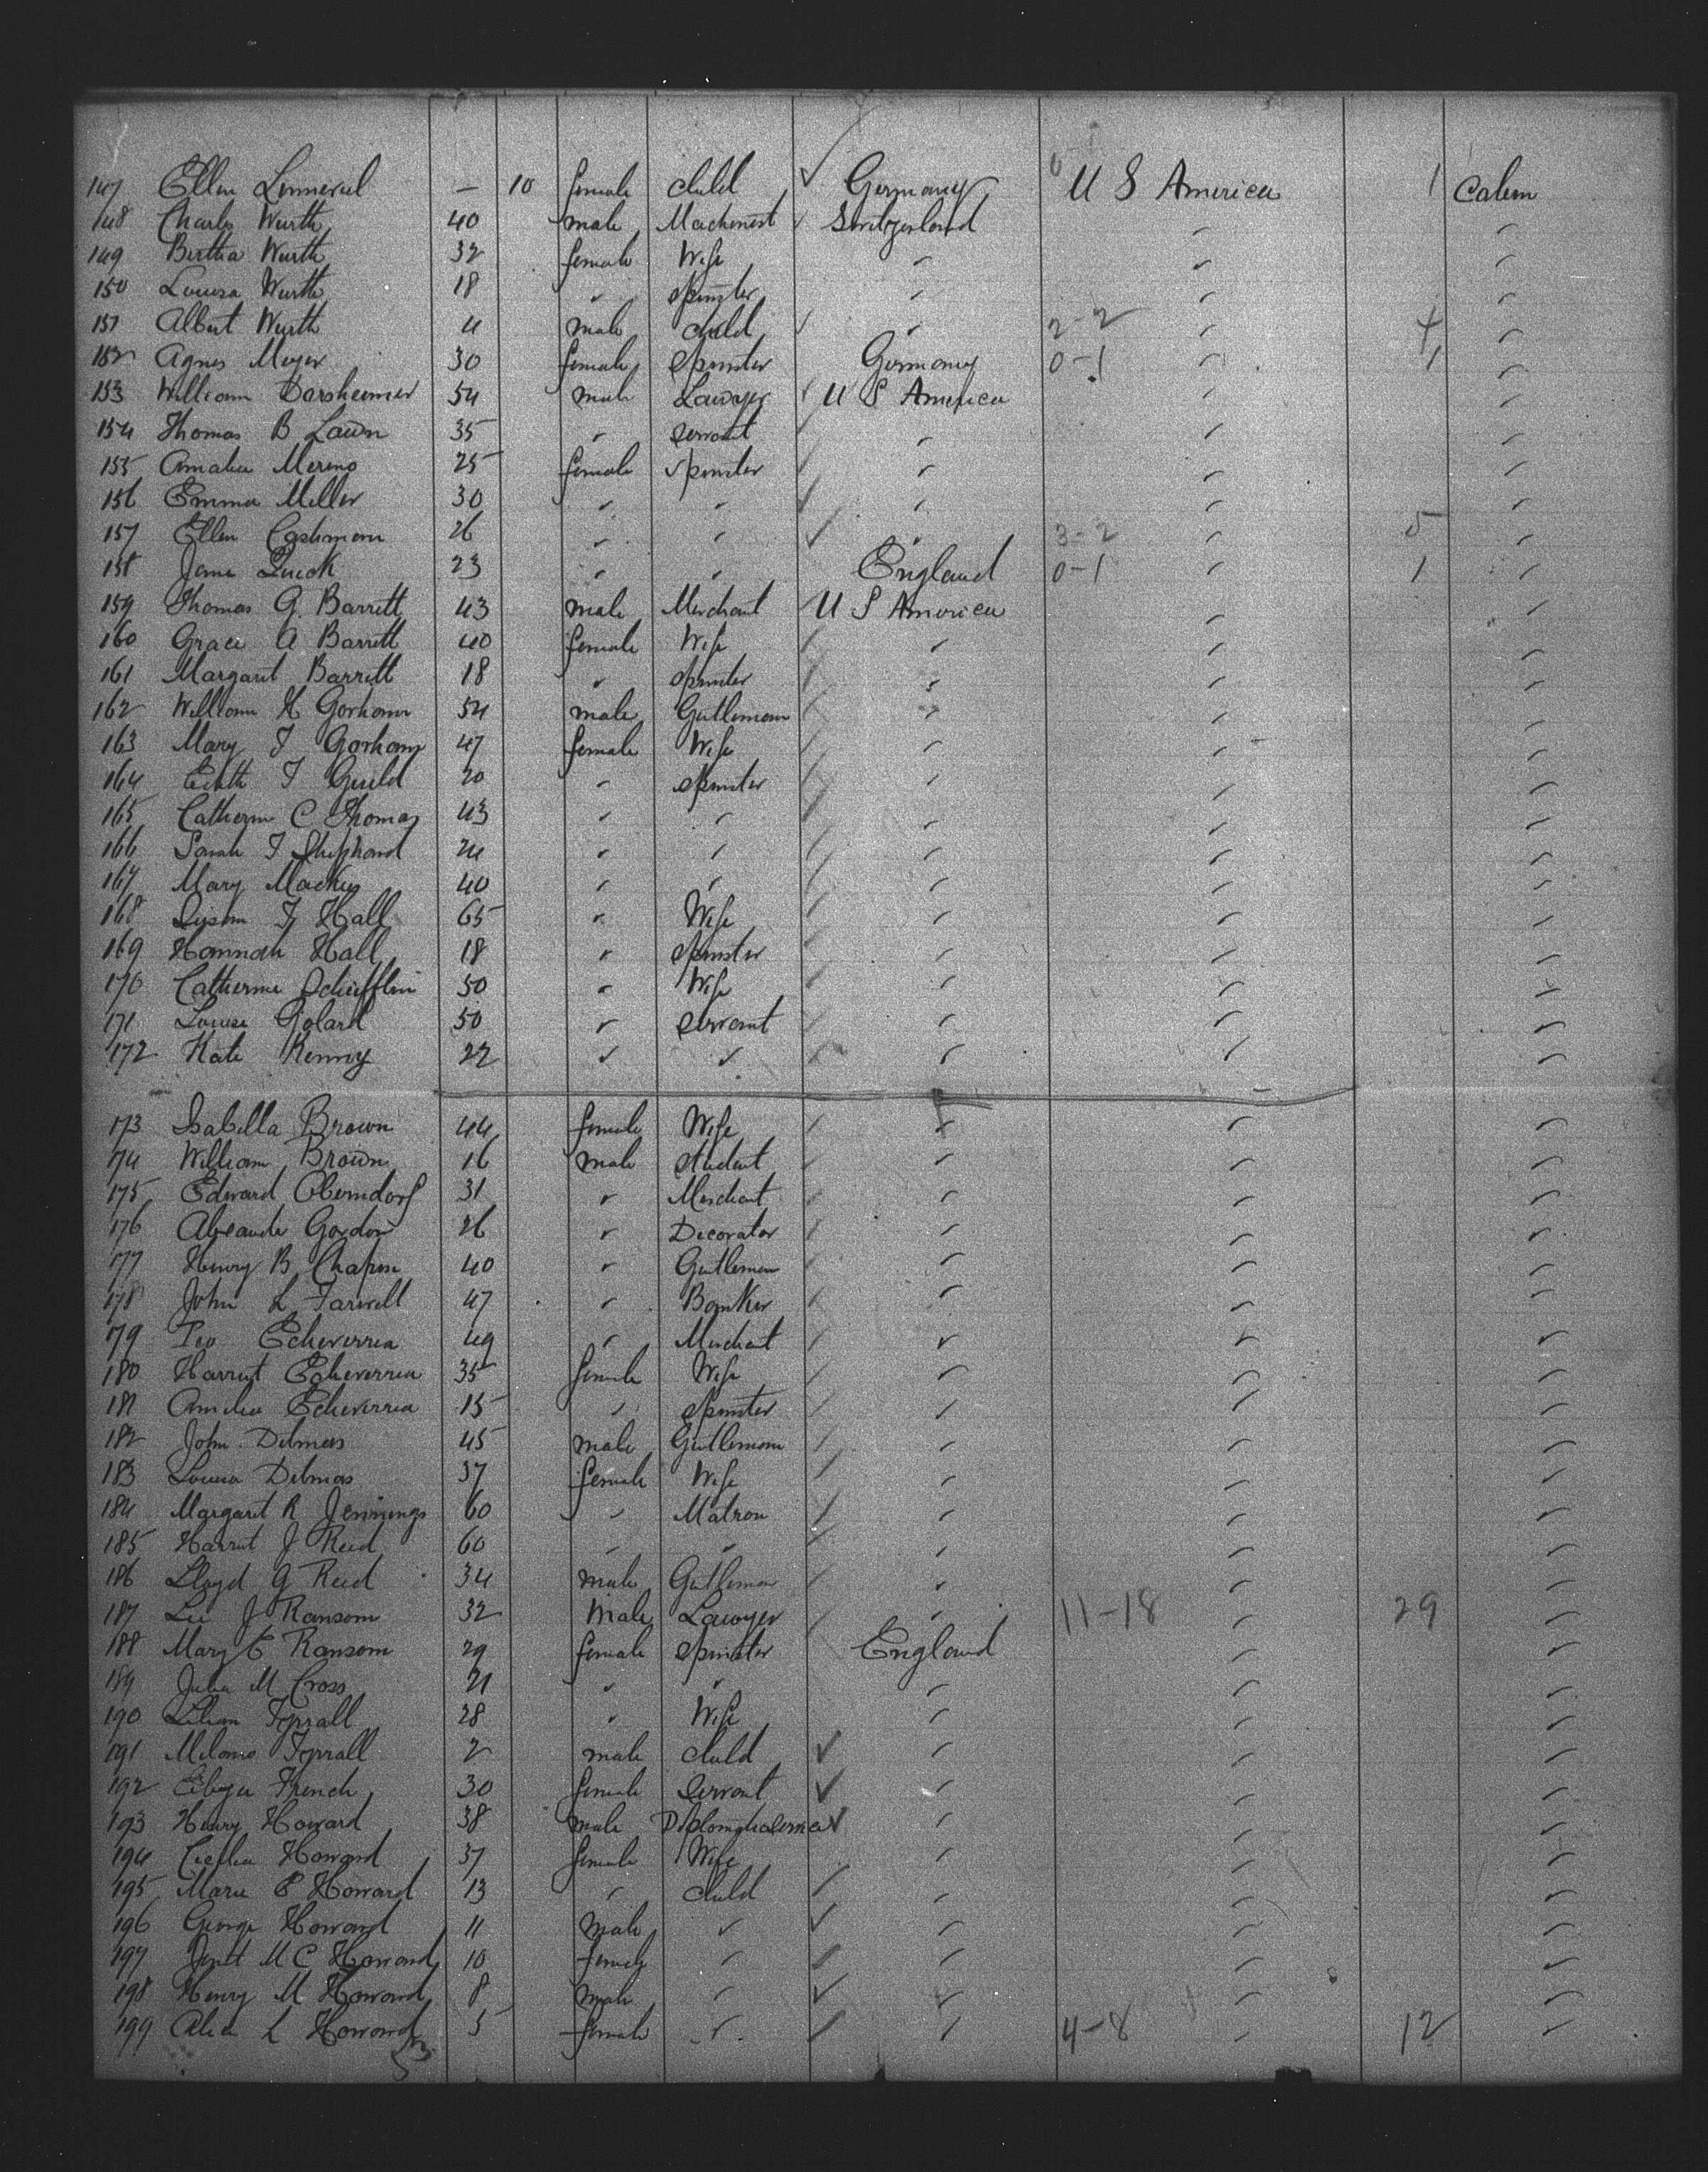 147 Ellen — 10 female child ✓ Germany U S America 1 Cabin
148 Charles Wurth 40 male Machinest ✓ Switzerland " "
149 Bertha Wurth 32 female Wife " " "
150 Louisa Wurth 18 " Spinster " " "
151 Albert Wurth 4 male child ✓ " 2-2 " 4 "
152 Agnes Meyer 30 female Spinster Germany 0-1 " 1 "
153 William Dorsheimer 54 male Lawyer ✓ U S America " "
154 Thomas B Lawn 35 " Servant ✓ " " "
155 Amalia Merino 25 female Spinster ✓ " " "
156 Emma Miller 30 " " ✓ " " "
157 Ellen Cashman 26 " " ✓ " 3-2 " 5 "
158 Jane Quick 23 " " England 0-1 " 1 "
159 Thomas G. Barrett 43 male Merchant ✓ U S America " "
160 Grace A Barrett 40 female Wife ✓ " " "
161 Margaret Barrett 18 " Spinster ✓ " " "
162 William H Gorham 54 male Gentleman ✓ " " "
163 Mary F Gorham 47 female Wife ✓ " " "
164 Edith F Guild 20 " Spinster ✓ " " "
165 Catherine C Thomas 43 " " ✓ " " "
166 Sarah F Shephard 24 " " ✓ " " "
167 Mary 40 " " ✓ " " "
168 F Hall 65 " Wife ✓ " " "
169 Hannah Hall 18 " Spinster ✓ " " "
170 Catherine Schiefflin 50 " Wife ✓ " " "
171 Louise Golard 50 " Servant ✓ " " "
172 Kate Kenny 22 " " ✓ " " "
173 Isabella Brown 44 female Wife ✓ " " "
174 William Brown 16 male Student ✓ " " "
175 Edward Oberndorf 31 " Merchant ✓ " " "
176 Alexander Gordon 26 " Decorator ✓ " " "
177 Henry B Chapin 40 " Gentleman ✓ " " "
178 John L Farwell 47 " Banker ✓ " " "
179 Pio Echeverria 49 " Merchant ✓ " " "
180 Harriet Echeverria 35 female Wife ✓ " " "
181 Amelia Echeverria 15 " Spinster ✓ " " "
182 John Delmas 45 male Gentleman ✓ " " "
183 Louisa Delmas 37 female Wife ✓ " " "
184 Margaret R Jennings 60 " Matron ✓ " " "
185 Harriet J Reed 60 " " ✓ " " "
186 Lloyd G Reed 34 male Gentleman ✓ " " "
187 Lee J Ransom 32 Male Lawyer ✓ " 11-18 " 29 "
188 Mary E Ransom 29 female Spinster England " "
189 Julia M Cross 21 " " " " "
190 Lilian 28 " Wife " " "
191 2 male child ✓ " " "
192 French 30 female Servant ✓ " " "
193 Henry Howard 38 male ✓ " " "
194 Cecilia Howard 37 female Wife " " "
195 Marie E Howard 13 " child ✓ " " "
196 George Howard 11 Male " ✓ " " "
197 M C Howard 10 female " ✓ " " "
198 Henry M Howard 8 male " ✓ " " "
199 Alice L Howard 5 female " ✓ " 4-8 " 12 "